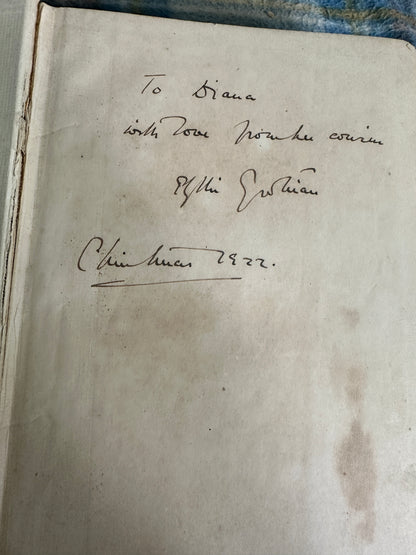 To Diana
with love from her cousin
Christmas 1922.